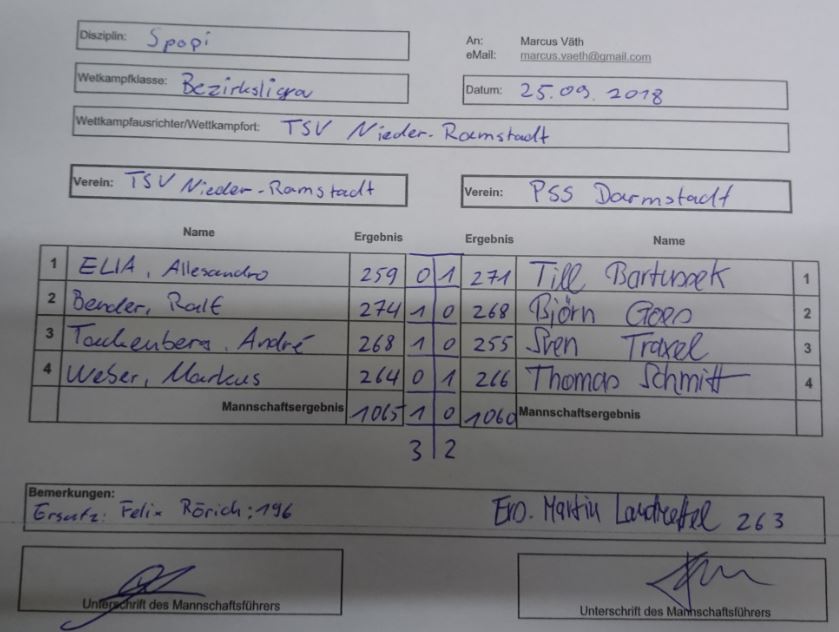 Disziplin: Spopi
An: Marcus Väth
eMail: marcus.vaeth@gmail.com
Wetkampfklasse: Bezirksliga
Datum: 25.09.2018
Wettkampfausrichter/Wettkampfort: TSV Nieder-Ramstadt
Verein: TSV Nieder-Ramstadt
Verein: PSS Darmstadt
Name Ergebnis Ergebnis Name
1 ELIA, Allesandro 259 0 1 271 Till Bartussek 1
2 Bender, Ralf 274 1 0 268 Björn Goos 2
3 Tauchenberg, André 268 1 0 255 Sven Traxel 3
4 Weber, Markus 264 0 1 266 Thomas Schmitt 4
Mannschaftsergebnis 1065 1 0 1060 Mannschaftsergebnis
3 2
Bemerkungen:
Ersatz: Felix Rörich: 196 Martin 263
Unterschrift des Mannschaftsführers
Unterschrift des Mannschaftsführers